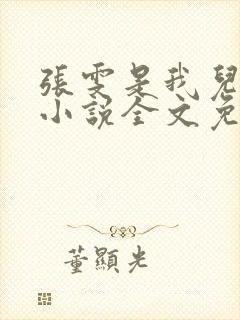 張雯是我兒
小說全文免
董顯光